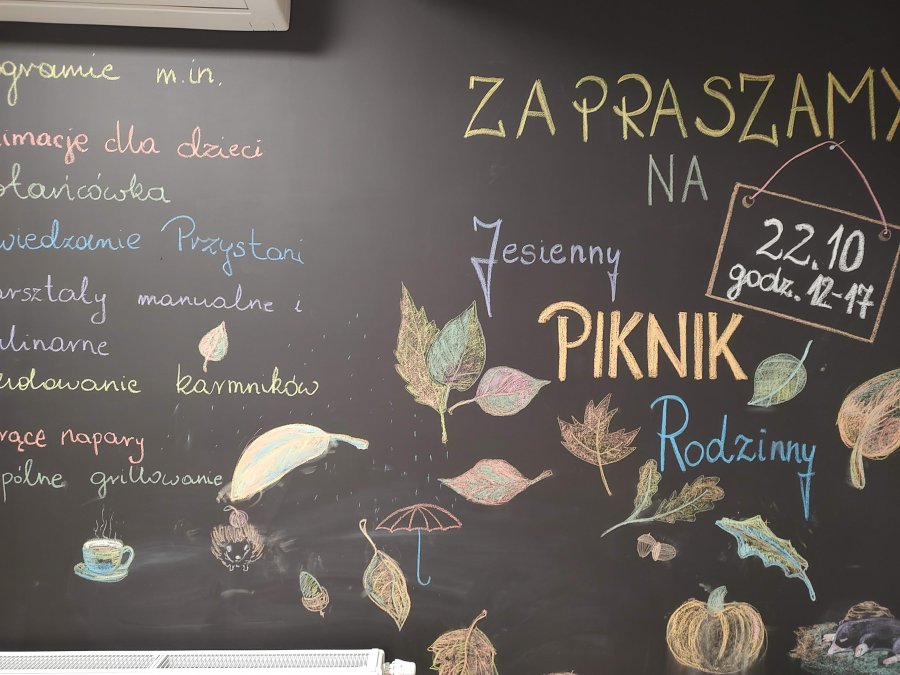 gramie m.in.
imacje dla dzieci
otańcówka
wiedzanie Przystani
arsztaty manualne i
ulinarne
udowanie karmników
rące napary
pólne grillowanie
ZAPRASZAMY
NA
Jesienny
PIKNIK
Rodzinny
22.10
godz. 12-17